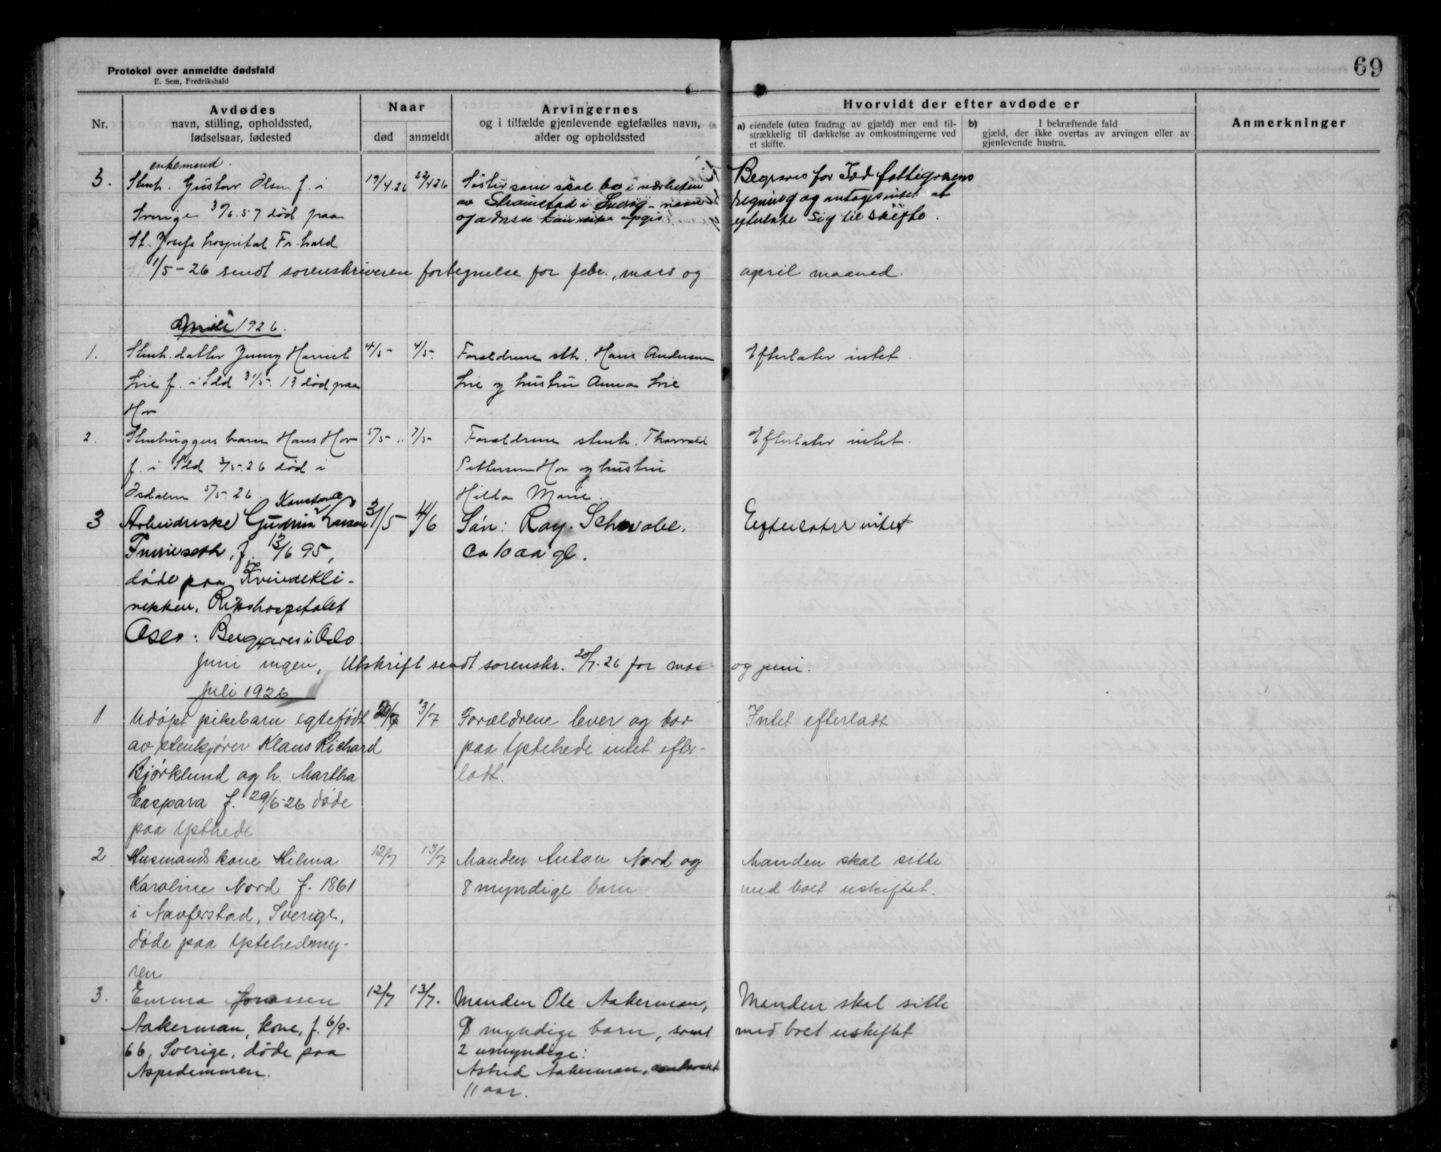 69
Protokol over anmeldte dødsfald
E. Sem, Fredrikshald
Nr.
Avdødes
navn, stilling, opholdssted,
fødselsaar, fødested
Naar
død
anmeldt
Arvingernes
og i tilfælde gjenlevende egtefælles navn,
alder og opholdssted
Hvorvidt der efter avdøde er
a) eiendele (uten fradrag av gjæld) mer end til-
strækkelig til dækkelse av omkostningerne ved
et skifte.
b) I bekræftende fald
gjæld, der ikke overtas av arvingen eller av
gjenlevende hustru.
Anmerkninger
enkemand.
3. Stenh. Gustav Olsen f. i
Sverige 3/6.57 død paa
St. Josefs hospital Fr.hald
19/4.26
Søster som skal bo i nærheten
av Strømstad i Sverig - navn
og adresse kan ikke opgis
Begraves for Idd fattigvæsens
regning og antages intet at
efterlate sig til skifte.
1/5-26 sendt sorenskriveren fortegnelse for febr., mars og april maaned.
1926.
1. Stenh. datter Jenny Harriet
Lie f. i Idd 31/5-13 død paa
Hov
4/5-
4/5-
Forældrene sth. Hans Andersen
Lie og hustru Anna Lie
Efterlater intet
2. Stenhuggers barn Hans Hov
f. i Idd 3/5-26 død i
Isdalen 5/5-26
5/5- "
7/5-
Forældrene stenh. Thorvald
Pettersen Hov og hustru
Hilda Marie.
Efterlater intet.
3 Arbeiderske Gudrun Larsen
f. 13/6 95,
døde paa Kvindekli-
nikken, Rikshospitalet
Oslo. Begraves i Oslo.
31/5-
4/6
Søn: Roy. Schwabe.
ca 10 aa gl.
Efterlater intet
Juni ingen, Utskrift sendt sorenskr. 20/7-26 for mai og juni.
Juli 1926
1 Udøpt pikebarn egtefødt
av stenkjører Klaus Richard
Bjørklund og h. Martha
Caspara f. 29/6-26 døde
paa Ystehede
3/7
Forældrene lever og bor
paa Ystehede intet efter-
ladt.
Intet efterladt
2 Husmands kone Hilma
Karoline Nord f. 1861
i Naverstad, Sverige,
døde paa Ystehedmy-
ren
12/7
13/7
Manden Anton Nord og
8 myndige barn
Manden skal sitte
med boet uskiftet.
3. Emma Jonassen
Aakerman, kone, f. 6/9-
66, Sverige, døde paa
Aspedammen.
12/7
13/7.
Manden Ole Aakerman,
8 myndige barn, samt
2 umyndige:
Astrid Aakerman,
11 aar.
Manden skal sitte
med boet uskiftet